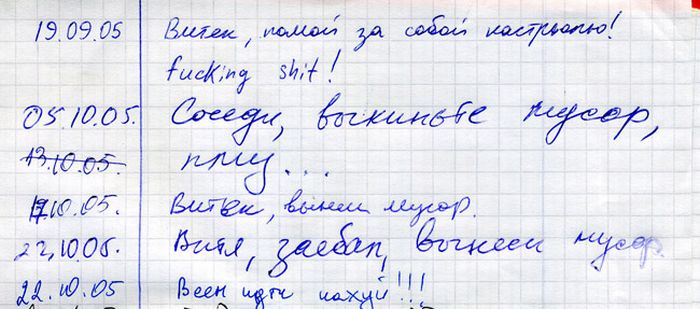 19.09.05 Витек, помой за собой кастрюлю!
fucking shit!
05.10.05. Соседи, выкиньте мусор,
13.10.05. плиз...
17.10.05. Витек, вынеси мусор.
22.10.05. Витя, заебал, вынеси мусор.
22.10.05 Всем идти нахуй!!!